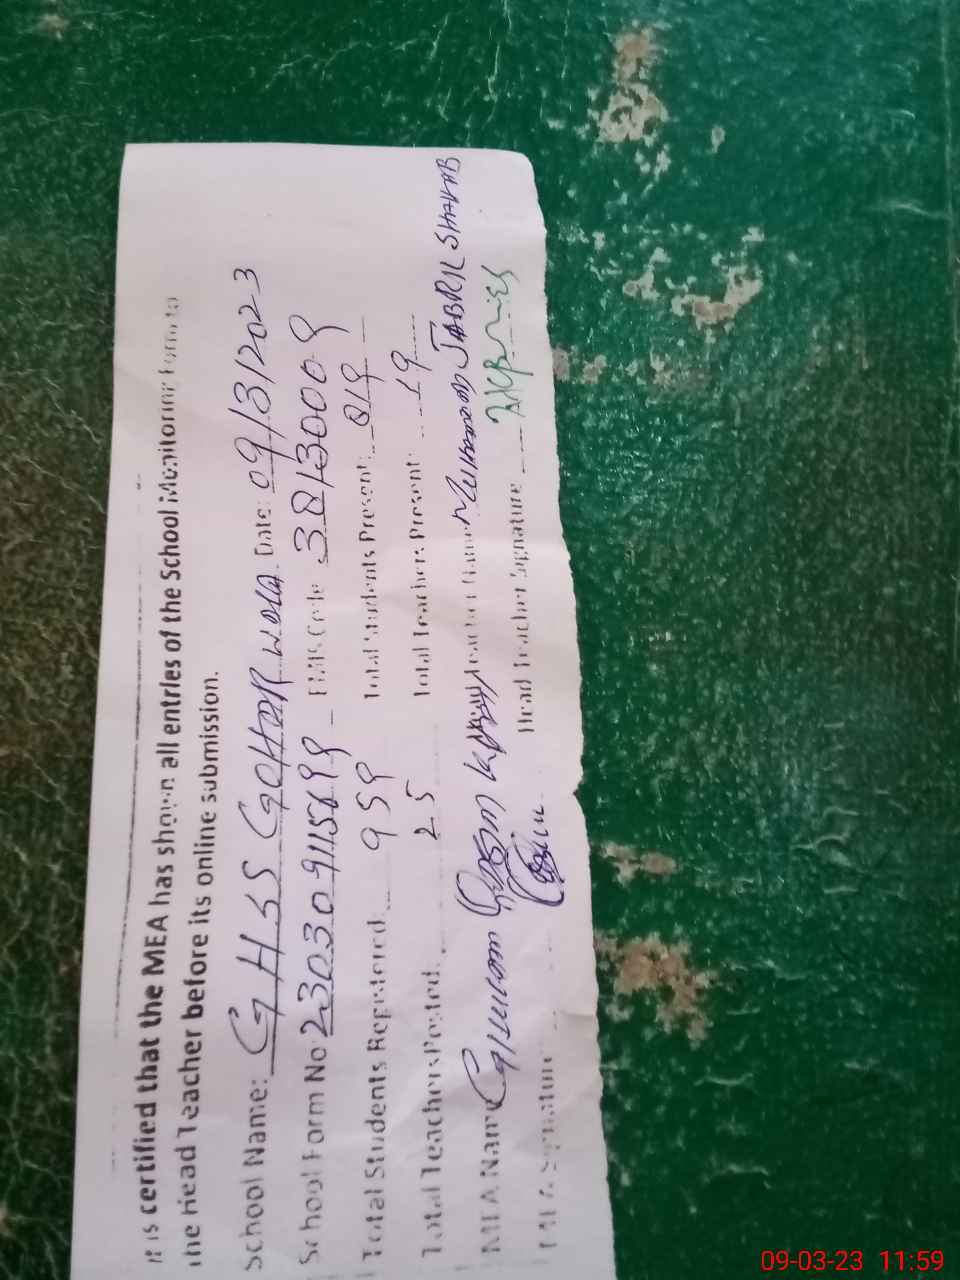 It is certified that the MEA has shown all entries of the School Monitoring Form to
the Head Teacher before its online submission.
School Name: GHSS GOHAR WALA Date: 09/3/2023
School Form No: 230309115699 EMIS Code: 38130009
Total Students Registered: 959 Total Students Present: 819
Total Teachers Posted: 25 Total Teachers Present: 19
MEA Name Ghulam Qasim Khan Teacher Name Muhammad JABRIL SHAHAB
MEA Signature Head Teacher Signature
09-03-23 11:59